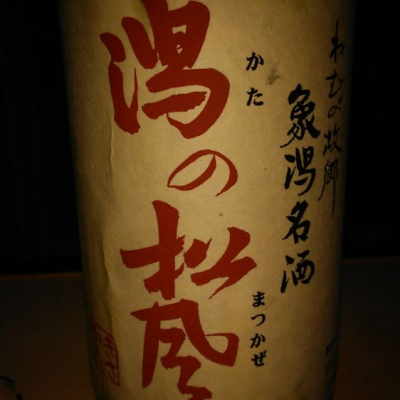 わびの故郷
象潟名酒
かた
潟の松風
まつかぜ